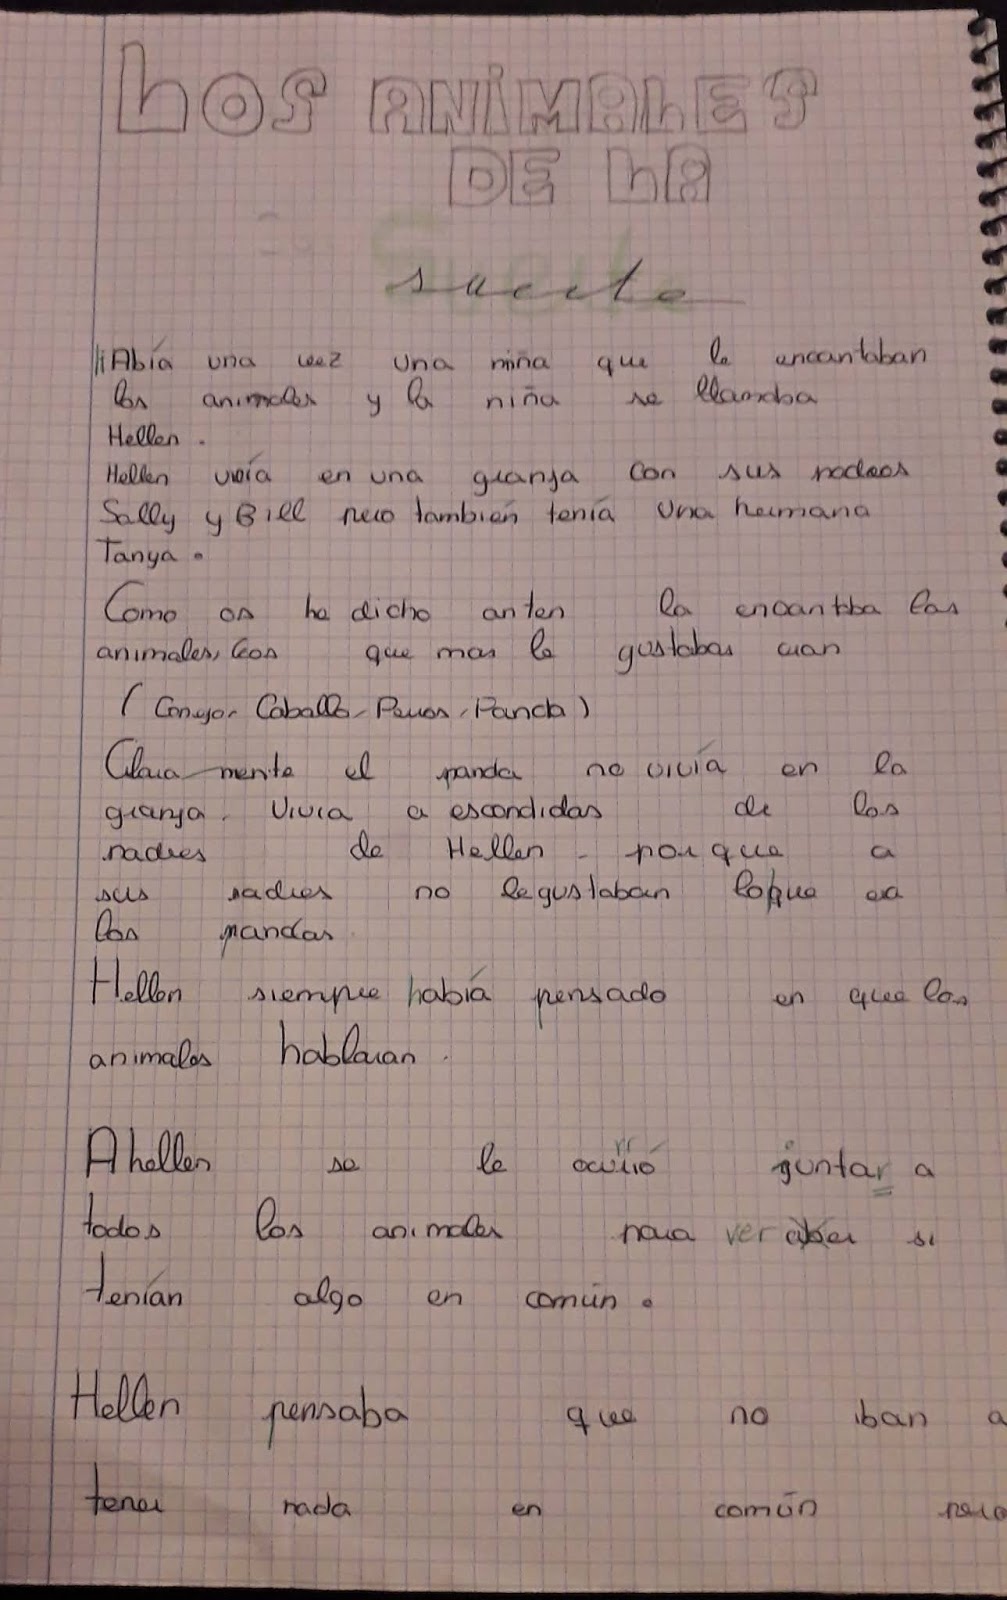 LOS ANIMALES
DE LA
suerte
Abía una vez una niña que le encantaban
los animales y la niña se llamaba
Hellen.
Hellen vivía en una granja con sus padres
Sally y Bill pero también tenía una hermana
Tanya.
Como os he dicho antes la encantba los
animales, los que mas le gustabas eran
(Conejo, Caballo, Perros, Panda)
Clara mente el panda no vivía en la
granja. Vivia a escondidas de los
padres de Hellen porque a
sus padres no legustaban loque era
los pandas.
Hellen siempre había pensado en que los
animales hablaran.
A hellen se le ocurrió juntar a
todos los animales para ver si
tenían algo en común.
Hellen pensaba que no iban a
tener nada en común pero